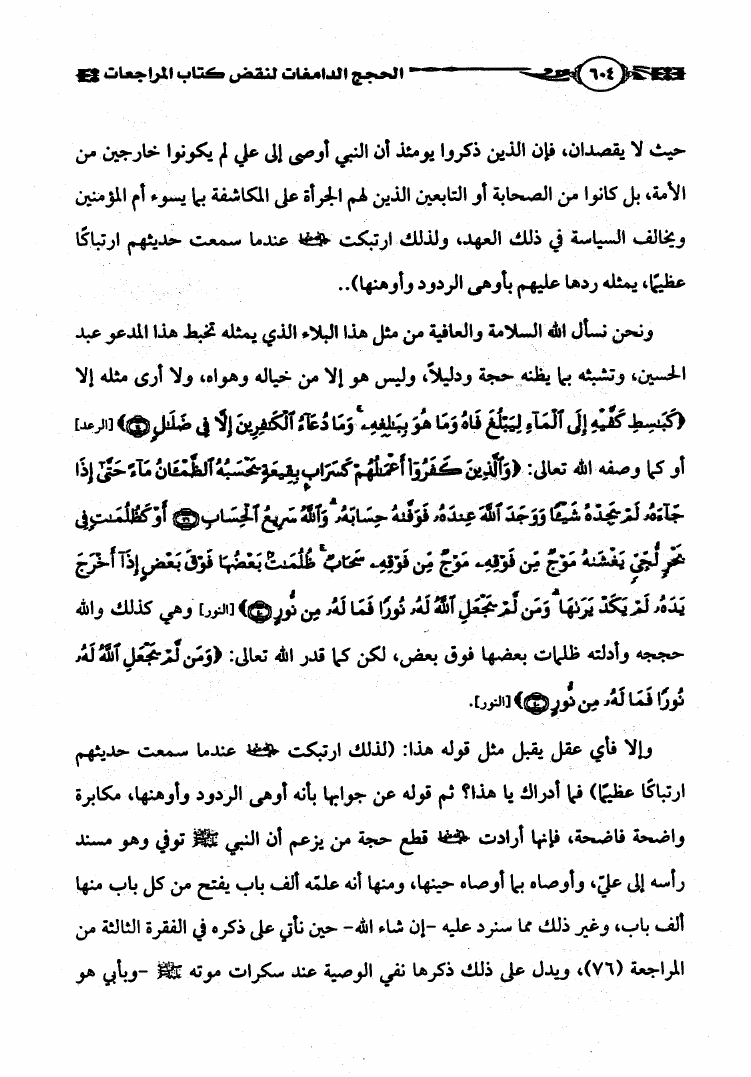 ٦٠٤ الحجج الدامغات لنقض كتاب المراجعات
حيث لا يقصدان، فإن الذين ذكروا يومئذ أن النبي أوصى إلى علي لم يكونوا خارجين من
الأمة، بل كانوا من الصحابة أو التابعين الذين لهم الجرأة على المكاشفة بما يسوء أم المؤمنين
ويخالف السياسة في ذلك العهد، ولذلك ارتبكت رضي الله عنها عندما سمعت حديثهم ارتباكًا
عظيمًا، يمثله ردها عليهم بأوهى الردود وأوهنها)..
ونحن نسأل الله السلامة والعافية من مثل هذا البلاء الذي يمثله تخبط هذا المدعو عبد
الحسين، وتشبثه بما يظنه حجة ودليلاً، وليس هو إلا من خياله وهواه، ولا أرى مثله إلا
﴿كَبَـٰسِطِ كَفَّيۡهِ إِلَى ٱلۡمَآءِ لِيَبۡلُغَ فَاهُ وَمَا هُوَ بِبَـٰلِغِهِۦۚ وَمَا دُعَآءُ ٱلۡكَـٰفِرِينَ إِلَّا فِي ضَلَـٰلٖ ۝١٤﴾ [الرعد]
أو كما وصفه الله تعالى: ﴿وَٱلَّذِينَ كَفَرُوٓاْ أَعۡمَـٰلُهُمۡ كَسَرَابِۭ بِقِيعَةٖ يَحۡسَبُهُ ٱلظَّمۡـَٔانُ مَآءً حَتَّىٰٓ إِذَا
جَآءَهُۥ لَمۡ يَجِدۡهُ شَيۡـٔٗا وَوَجَدَ ٱللَّهَ عِندَهُۥ فَوَفَّىٰهُ حِسَابَهُۥۗ وَٱللَّهُ سَرِيعُ ٱلۡحِسَابِ ۝٣٩ أَوۡ كَظُلُمَـٰتٖ فِي
بَحۡرٖ لُّجِّيّٖ يَغۡشَىٰهُ مَوۡجٞ مِّن فَوۡقِهِۦ مَوۡجٞ مِّن فَوۡقِهِۦ سَحَابٞۚ ظُلُمَـٰتُۢ بَعۡضُهَا فَوۡقَ بَعۡضٍ إِذَآ أَخۡرَجَ
يَدَهُۥ لَمۡ يَكَدۡ يَرَىٰهَاۗ وَمَن لَّمۡ يَجۡعَلِ ٱللَّهُ لَهُۥ نُورٗا فَمَا لَهُۥ مِن نُّورٍ ۝٤٠﴾ [النور] وهي كذلك والله
حججه وأدلته ظلمات بعضها فوق بعض، لكن كما قدر الله تعالى: ﴿وَمَن لَّمۡ يَجۡعَلِ ٱللَّهُ لَهُۥ
نُورٗا فَمَا لَهُۥ مِن نُّورٍ ۝٤٠﴾ [النور].
وإلا فأي عقل يقبل مثل قوله هذا: (لذلك ارتبكت رضي الله عنها عندما سمعت حديثهم
ارتباكًا عظيمًا) فما أدراك يا هذا؟ ثم قوله عن جوابها بأنه أوهى الردود وأوهنها، مكابرة
واضحة فاضحة، فإنها أرادت رضي الله عنها قطع حجة من يزعم أن النبي ﷺ توفي وهو مسند
رأسه إلى عليّ، وأوصاه بما أوصاه حينها، ومنها أنه علمّه ألف باب يفتح من كل باب منها
ألف باب، وغير ذلك مما سنرد عليه -إن شاء الله- حين نأتي على ذكره في الفقرة الثالثة من
المراجعة (٧٦)، ويدل على ذلك ذكرها نفي الوصية عند سكرات موته ﷺ -وبأبي هو